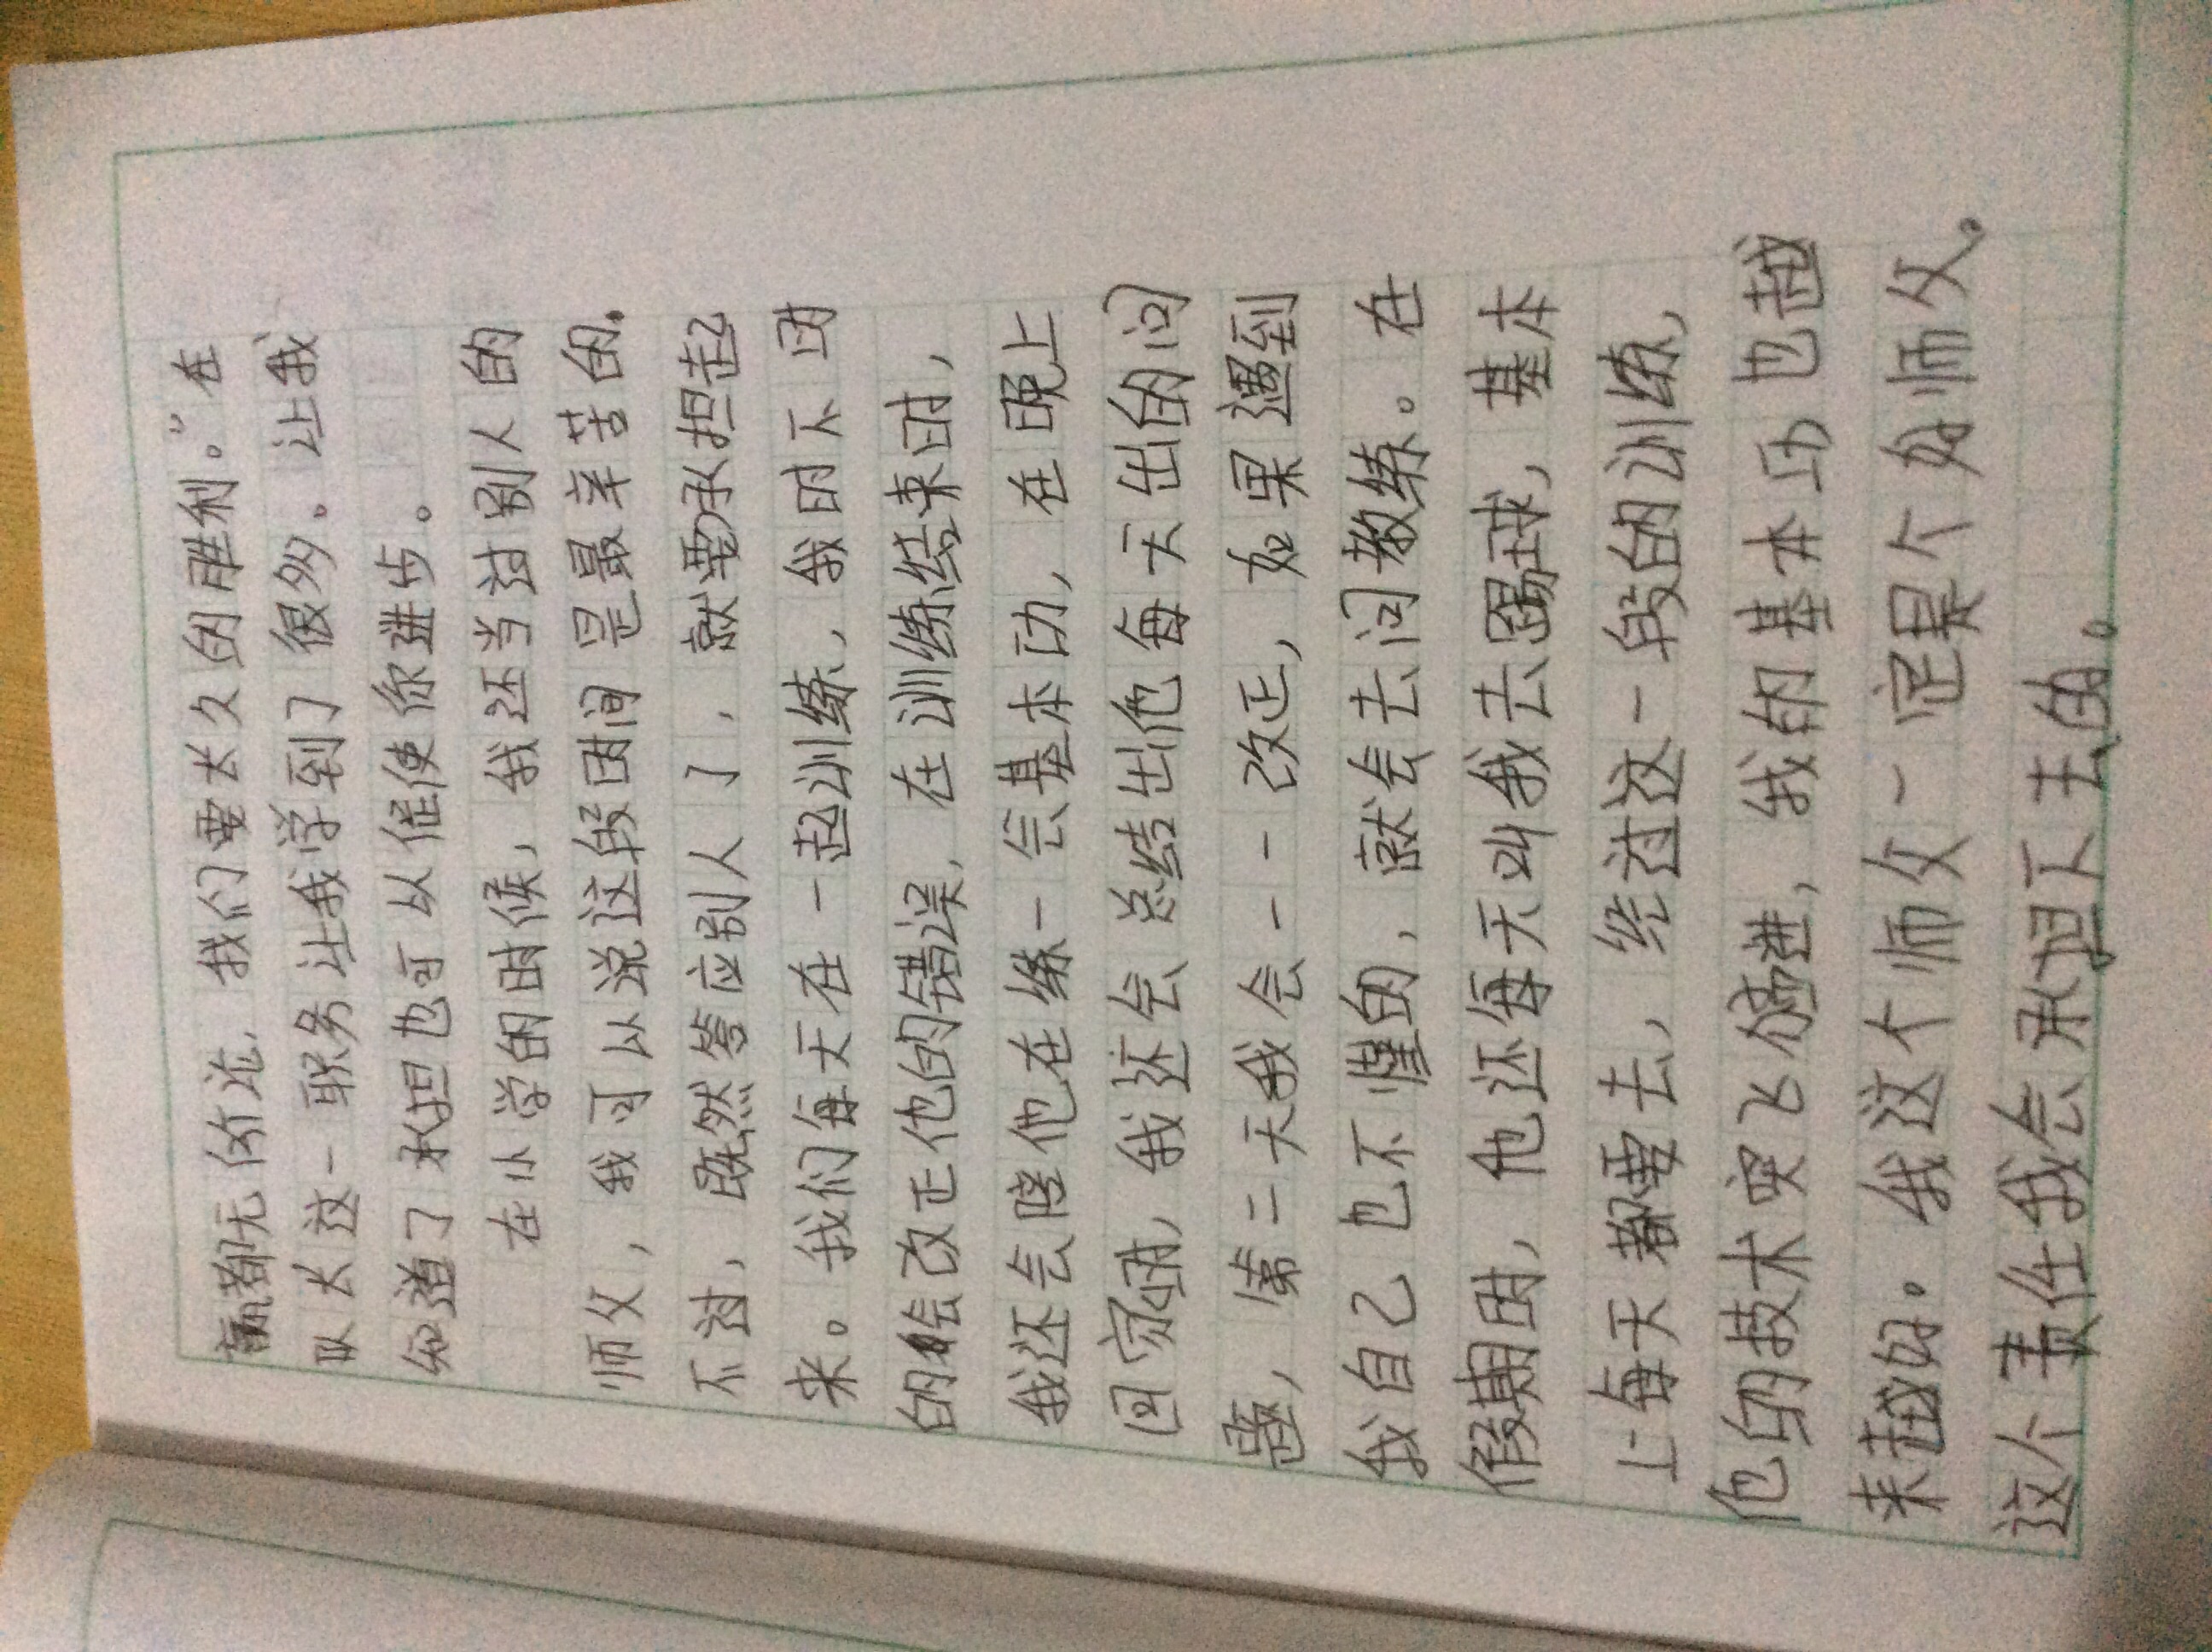 赢都无所谓，我们要长久的胜利。”在
队长这一职务让我学到了很多。让我
知道了承担也可以催使你进步。
在小学的时候，我还当过别人的
师父，我可以说这段时间是最辛苦的。
不过，既然答应别人了，就要承担起
来。我们每天在一起训练，我时不时
的会改正他的错误，在训练结束时，
我还会陪他在练一会基本功，在晚上
回家时，我还会总结出他每天出的问
题，第二天我会一一改正，如果遇到
我自己也不懂的，就会去问教练。在
假期时，他还每天叫我去踢球，基本
上每天都要去，经过这一段的训练，
他的技术突飞猛进，我的基本功也越
来越好。我这个师父一定是个好师父。
这个责任我会承担下去的。